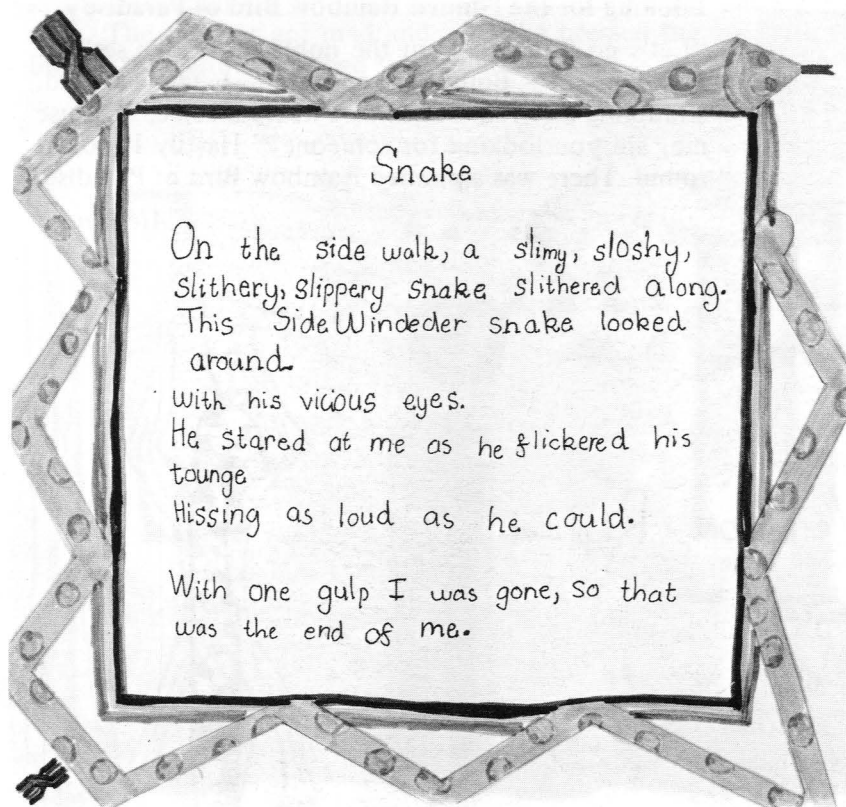 Snake
On the side walk, a slimy, sloshy,
slithery, slippery snake slithered along.
This SideWindeder snake looked
around.
with his vicious eyes.
He stared at me as he flickered his
tounge
Hissing as loud as he could.
With one gulp I was gone, so that
was the end of me.